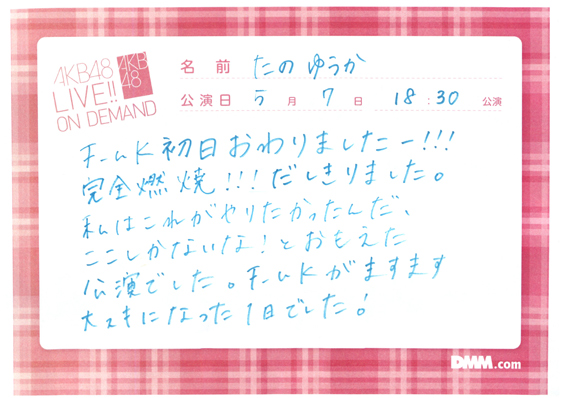 AKB48
LIVE!!
ON DEMAND
AKB
48
名前 たの ゆうか
公演日 5月7日 18:30 公演
チームK初日おわりましたー!!!
完全燃焼!!!だしきりました。
私はこれがやりたかったんだ、
ここしかないな!とおもえた
公演でした。チームKがますます
大スキになった1日でした!
DMM.com